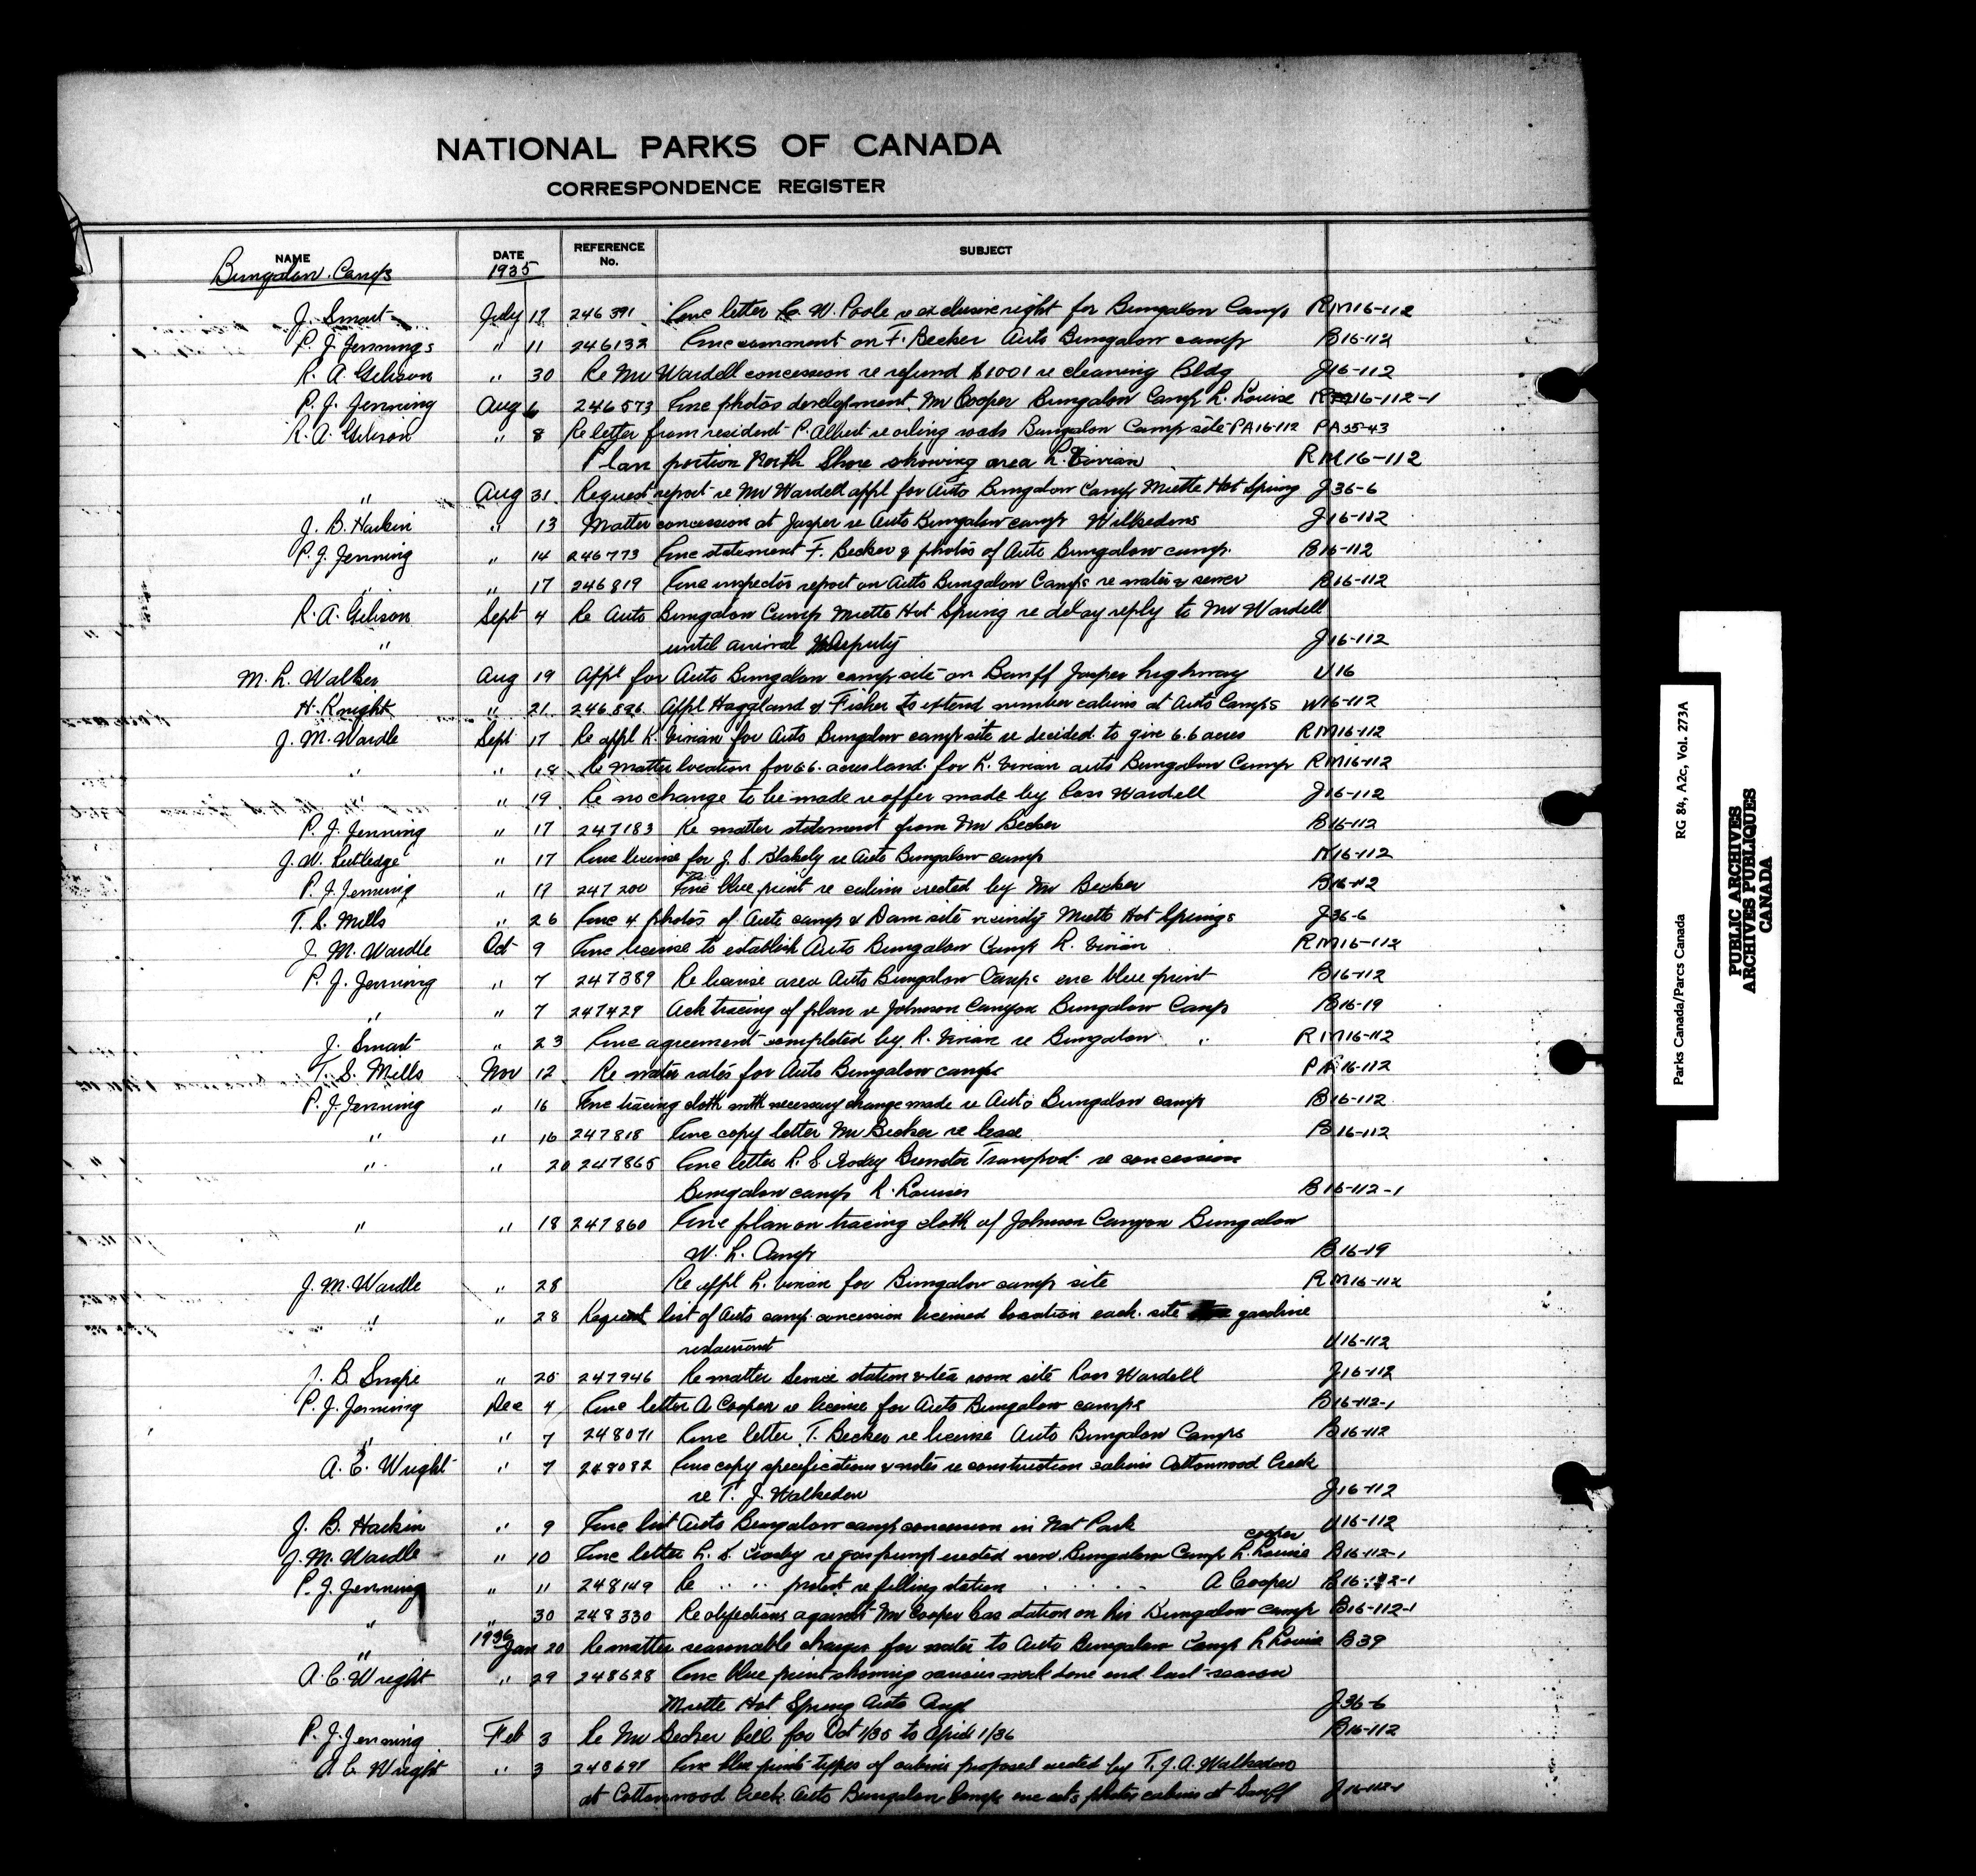 NATIONAL PARKS OF CANADA
CORRESPONDENCE REGISTER
NAME DATE REFERENCE No. SUBJECT
Bungalow Camps 1935
J. Smart July 17 246391 Enc letter C. W. Poole re exclusive right for Bungalow Camp RM16-112
P. J. Jennings " 11 246132 Enc comment on F. Becker Auto Bungalow camp B16-112
R. A. Gibson " 30 Re Mr Wardell concession re refund $1001 re cleaning Bldg J16-112
P. J. Jenning Aug 6 246573 Enc photos development Mr Cooper Bungalow Camp L. Louise 16-112-1
R. A. Gibson " 8 Re letter from resident P. Albert re oiling roads Bungalow Camp site PA16-112 PA35-43
Plan portion North Shore showing area L. Vivian RM16-112
" Aug 31 Request report re Mr Wardell appl for Auto Bungalow Camp Miette Hot Spring J36-6
J. B. Harkin " 13 Matter concession at Jasper re Auto Bungalow camp J16-112
P. J. Jenning " 14 246773 Enc statement F. Becker & photos of Auto Bungalow camp. B16-112
" " 17 246819 Enc inspector report on Auto Bungalow Camps re water & sewer B16-112
R. A. Gibson Sept 4 Re Auto Bungalow Camp Miette Hot Spring re delay reply to Mr Wardell
" until arrival Deputy J16-112
M. L. Walker Aug 19 Appl for Auto Bungalow camp site on Banff Jasper highway U16
H. Knight " 21 246826 Appl Haggland & Fisher to extend number cabins at Auto Camps W16-112
J. M. Wardle Sept 17 Re appl Vivian for Auto Bungalow camp site re decided to give 6.6 acres RM16-112
" " 18 Re matter location for 6.6. acres land for L. Vivian auto Bungalow Camp RM16-112
" " 19 Re no change to be made re offer made by Ross Wardell J16-112
P. J. Jenning " 17 247183 Re matter statement from Mr Becker B16-112
J. W. Rutledge " 17 Enc license for J. S. Blakely re Auto Bungalow camp 16-112
P. J. Jenning " 17 247200 Enc blue print re cabins erected by Mr Becker B16-112
T. S. Mills " 26 Enc 4 photos of Auto camp & Dam site vicinity Miette Hot Springs J36-6
J. M. Wardle Oct 9 Enc license to establish Auto Bungalow Camp L. Vivian RM16-112
P. J. Jenning " 7 247389 Re license area Auto Bungalow Camps enc blue print B16-112
" " 7 247429 Ack tracing of plan re Johnson Canyon Bungalow Camp B16-19
J. Smart " 23 Enc agreement completed by L. Vivian re Bungalow " RM16-112
T. S. Mills Nov 12 Re water rates for Auto Bungalow camps PA16-112
P. J. Jenning " 16 Enc tracing cloth with necessary change made re Auto Bungalow camp B16-112
" " 16 247818 Enc copy letter Mr Becker re lease B16-112
" " 20 247865 Enc letter L. S. Crosby Brewster Transport re concession
Bungalow camp L. Louise B16-112-1
" " 18 247860 Enc plan on tracing cloth of Johnson Canyon Bungalow
W. L. Camp B16-19
J. M. Wardle " 28 Re appl L. Vivian for Bungalow camp site RM16-112
" " 28 Request list of Auto camp concession licensed location each site gasoline
restaurant U16-112
J. B. Snape " 25 247946 Re matter Service station & tea room site Ross Wardell J16-112
P. J. Jenning Dec 4 Enc letter A Cooper re license for Auto Bungalow camps B16-112-1
" " 7 248071 Enc letter F. Becker re license Auto Bungalow Camps B16-112
A. C. Wright " 7 248082 Enc copy specifications & notes re construction cabins Cottonwood Creek
re T. J. Walkeden J16-112
J. B. Harkin " 9 Enc list Auto Bungalow camp concession in Nat Park U16-112
J. M. Wardle " 10 Enc letter L. S. Crosby re gas pump erected new Bungalow Camp L. Louise cooper B16-112-1
P. J. Jenning " 11 248149 Re " " protest re filling station " " " " A Cooper B16-112-1
" " 30 248330 Re objections against Mr Cooper Gas station on his Bungalow camp B16-112-1
" 1936 Jan 20 Re matter reasonable charges for water to Auto Bungalow Camp L Louise B39
A. C. Wright " 29 248628 Enc blue print showing various work done end last season
Miette Hot Spring Auto Camp J36-6
P. J. Jenning Feb 3 Re Mr Becker bill for Oct 1/35 to April 1/36 B16-112
A C Wright " 3 248691 Enc blue prints types of cabins proposed erected by T. J. A. Walkeden
at Cottonwood Creek Auto Bungalow Camps photos cabins at Banff J16-112-1
Parks Canada/Parcs Canada RG 84, A2c, Vol. 273A
PUBLIC ARCHIVES
ARCHIVES PUBLIQUES
CANADA